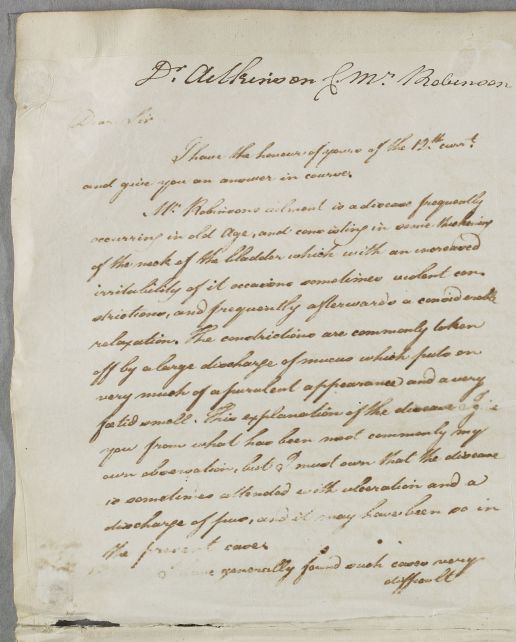 Dr. Aitkinson & Mr. Robinson
Dear Sir
I have the honour of yours of the 12th currt.
and give you an answer in course.
Mr. Robinsons ailment is a disease frequently
occurring in old Age, and consisting in some thickening
of the neck of the bladder which with an increased
irritability of it occasions sometimes violent con
strictions, and frequently afterwards a considerable
relaxation. The constrictions are commonly taken
off by a large discharge of mucus which puts on
very much of a purulent appearance and a very
fœtid smell. This explanation of the disease I give
you from what has been most commonly my
own observation, but I must own that the disease
is sometimes attended with ulceration and a
discharge of pus, and it may have been so in
the present case.
generally found such cases very
difficult